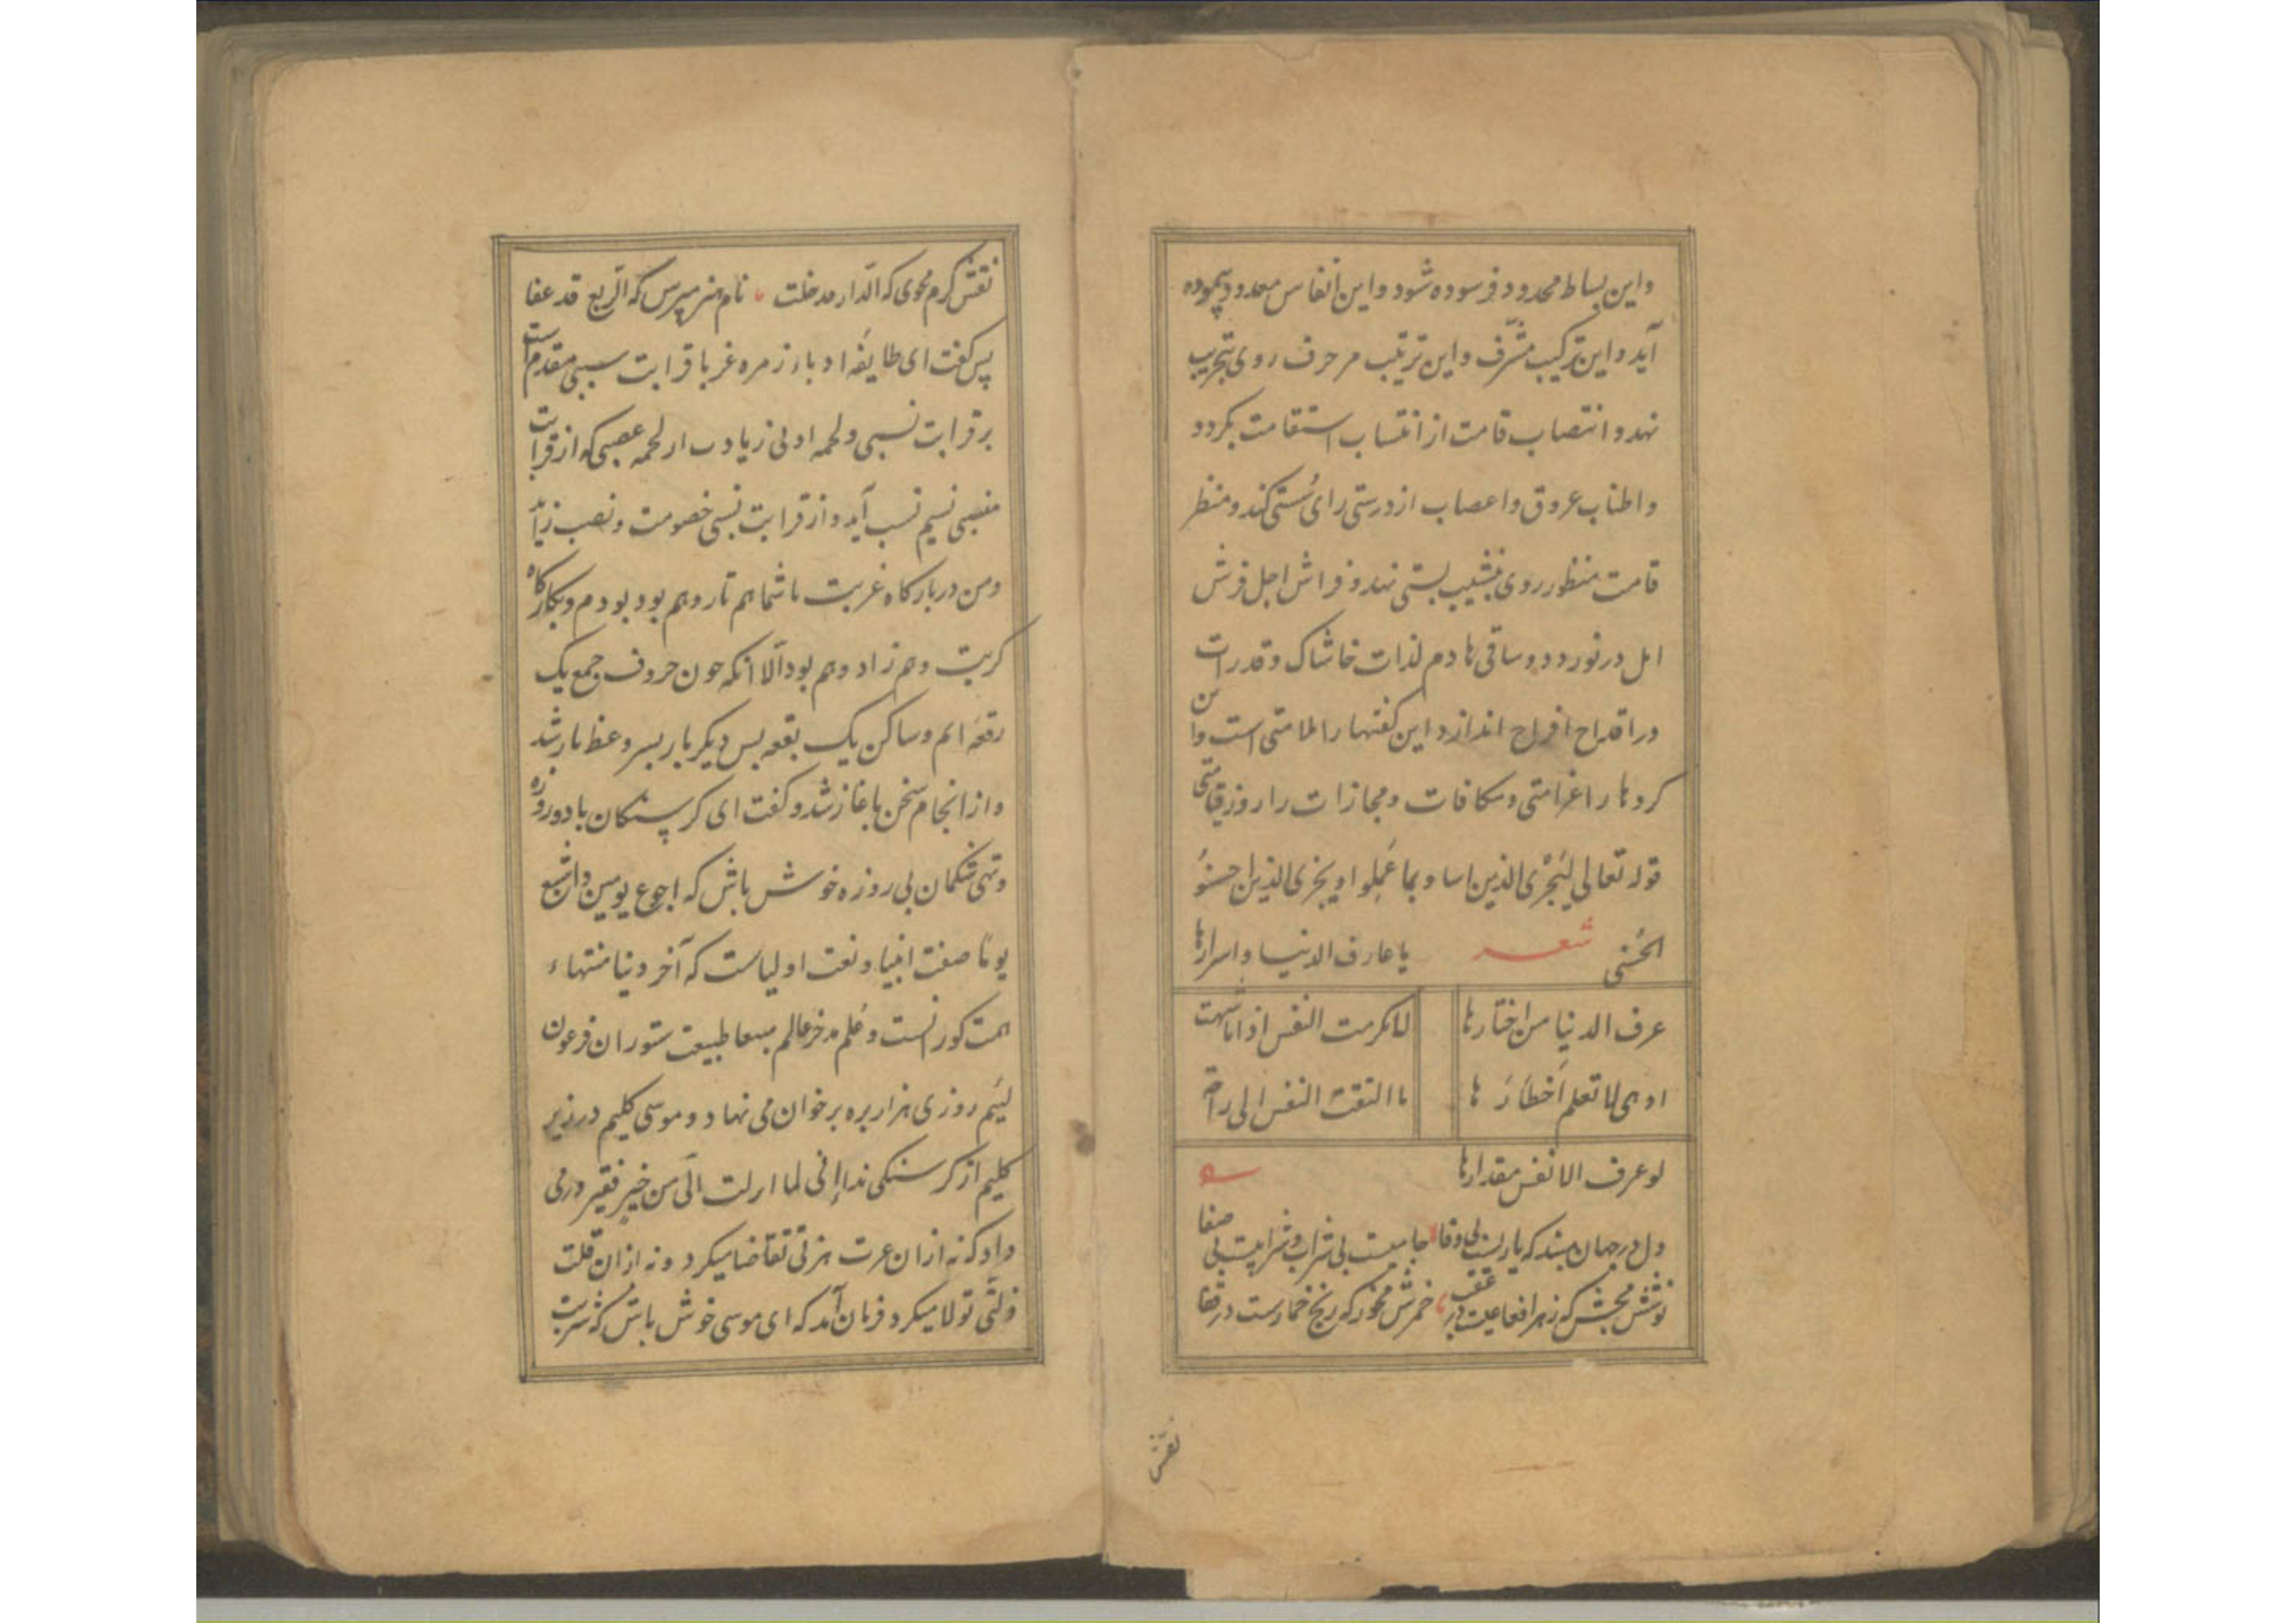 واین بساط محدود فرسوده شود واین انفاس معدود پیموده
آید واین ترکیب مشرف واین ترتیب مزحرف روی بتخریب
نهد و انتصاب قامت از انتساب استقامت بکردد
واطناب عروق واعصاب از درستی رای سُستی کند ومنظر
قامت منظور روی بنشیب پستی نهد و فراش اجل فرش
امل در نوردد و ساقی هادم لذات خاشاک وقدرات
در اقداح افراح اندازد این کفتها را ملامتی است واین
کردها را غرامتی ومکافات ومجازات را روز قیامتی
قوله تعالی لیَجْزی الذین اساوا بما عَمِلوا ویجزی الذین احسنوُ
الحُسنی شعر یا عارف الدنیا واسرارها
عرف الدنیا من اختارها لما کرمت النفس اذا ما شهت
او هی لما تعلم اَخطارَ ها ما التفت النفس الی راحة
لو عرف الانفس مقدارها
دل در جهان مبند که یاریست بی وفا جامیست بی شراب و شرابیست بی صفا
نوشش مچش که زهر افعاعیست در عقب خمرش مخور که رنج خمارست در قفا
نقش
نقش کرم مجوی که الدار قد خلت نام هنر مپرس که الربع قد عفا
پس کفت ای طایفه ادبا و زمره غربا قرابت سببی مقدم است
بر قرابت نسبی ولحمه ادبی زیادت از لحمه عصبی که از قرابت
منصبی نسیم نسب آید و از قرابت نسبی خصومت و نصب زاید
ومن در بارکاه غربت با شما هم تار وهم پود بودم و بکارکاه
کربت وهم زاد وهم بود الّا انکه چون حروف جمع یک
رقعه ایم وساکن یک بقعه پس دیکر بار بسر وعظ باز شد
و از انجام سخن باغاز شد و کفت ای کرسنکان بادوروزه
وتهی شکمان بی روزه خوش باش که اجوع یومین واشبع
یوما صفت انبیا ونعت اولیاست که آخر دنیا منتهاء
همت کورانست وعَلم مدخر عالم بیعا طبیعت ستوران فرعون
لئیم روزی هزار بره بر خوان می نهاد و موسی کلیم در زیر
کلیم از کرسنکی نداء إنی لما انزلت الَی من خیرٍ فقیر در می
داد که نه از ان عزت هزتی تقاضا میکرد ونه از ان قلت
ذلتی تولا میکرد فرمان آمد که ای موسی خوش باش که شربت